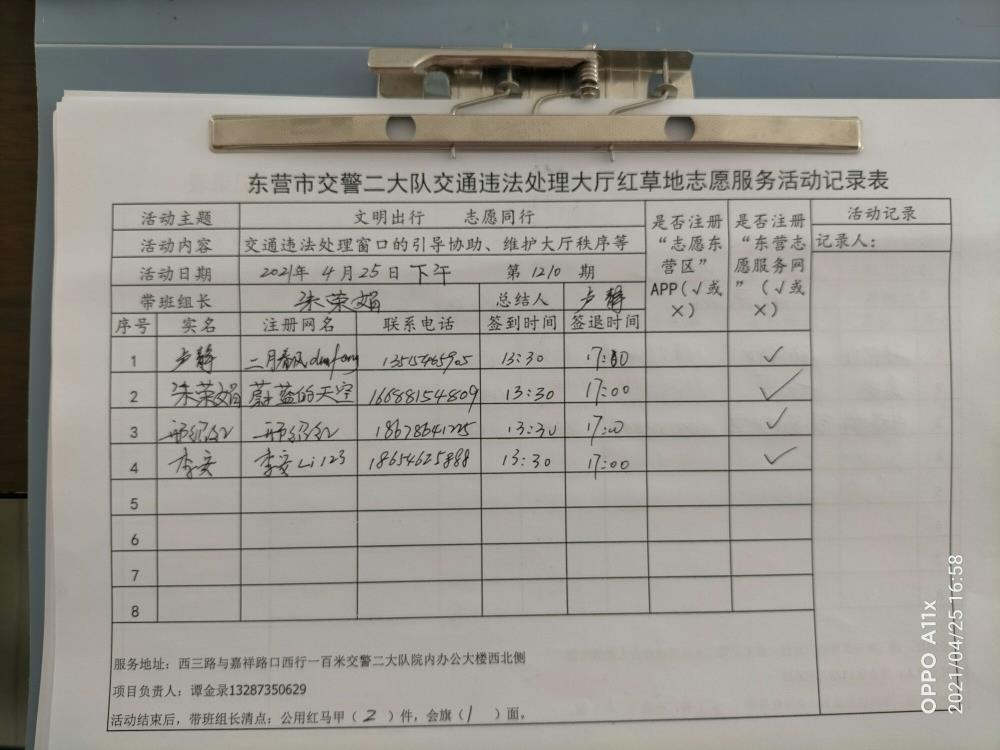 东营市交警二大队交通违法处理大厅红草地志愿服务活动记录表
活动主题 文明出行 志愿同行 是否注册“志愿东营区”APP(√或×) 是否注册“东营志愿服务网”(√或×) 活动记录
活动内容 交通违法处理窗口的引导协助、维护大厅秩序等 记录人:
活动日期 2021年4月25日下午 第1210期
带班组长 朱荣娟 总结人 卢静
序号 实名 注册网名 联系电话 签到时间 签退时间
1 卢静 二月春风 13515465905 13:30 17:00 ✓
2 朱荣娟 蔚蓝的天空 16688154809 13:30 17:00 ✓
3 18678641225 13:30 17:00 ✓
4 李安 李安Li123 18654625888 13:30 17:00 ✓
5
6
7
8
服务地址:西三路与嘉祥路口西行一百米交警二大队院内办公大楼西北侧
项目负责人:谭金录13287350629
活动结束后,带班组长清点:公用红马甲(2)件,会旗(1)面。
OPPO A11x
2021/04/25 16:58